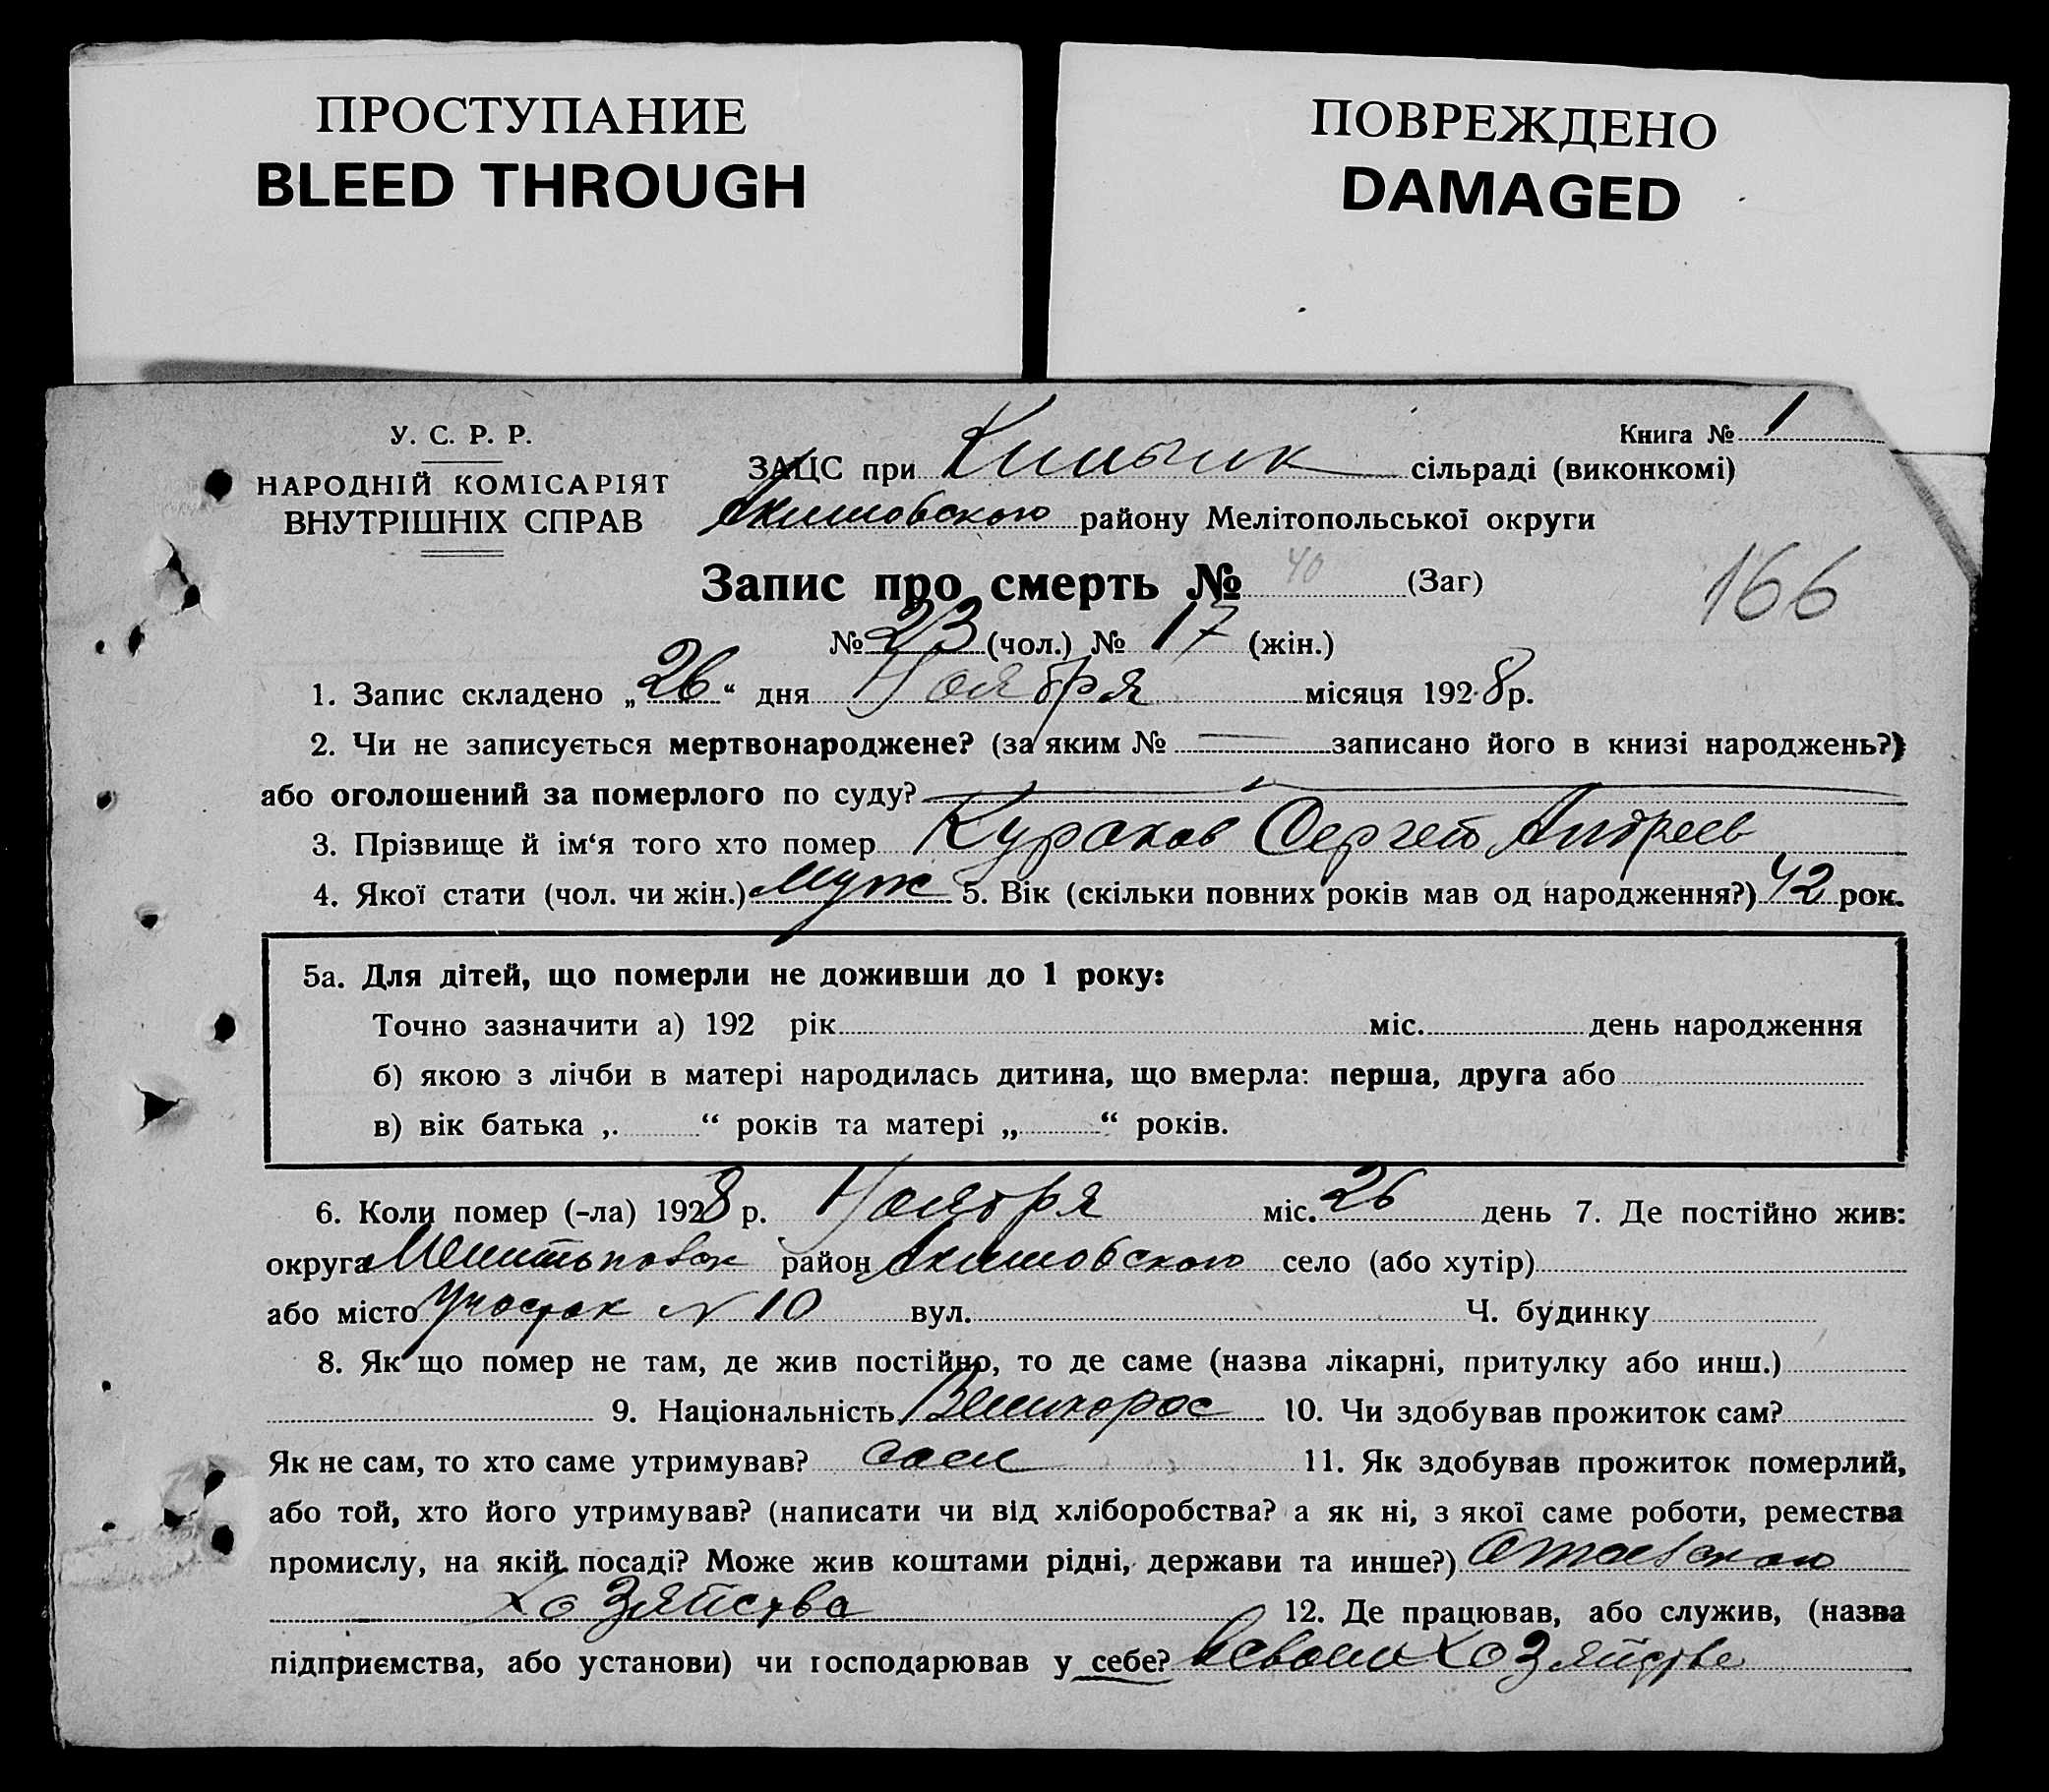 ПРОСТУПАНИЕ
BLEED THROUGH
ПОВРЕЖДЕНО
DAMAGED
Книга № 1
У. С. Р. Р.
НАРОДНІЙ КОМІСАРІЯТ
ВНУТРІШНІХ СПРАВ
ЗАЦС при сільраді (виконкомі)
Акимовского району Мелітопольської округи
Запис про смерть № 40 (Заг)
166
№ 23 (чол.) № 17 (жін.)
1. Запис складено „26“ дня Ноября місяця 1928 р.
2. Чи не записується мертвонароджене? (за яким № — записано його в книзі народжень?)
або оголошений за померлого по суду? —
3. Прізвище й ім‘я того хто помер Кураков Сергей Андреев
4. Якої стати (чол. чи жін.) муж 5. Вік (скільки повних років мав од народження?) 42 рок.
5а. Для дітей, що померли не доживши до 1 року:
Точно зазначити а) 192 рік міс. день народження
б) якою з лічби в матері народилась дитина, що вмерла: перша, друга або
в) вік батька „ “ років та матері „ “ років.
6. Коли помер (-ла) 1928 р. Ноября міс. 26 день 7. Де постійно жив:
округа район Акимовского село (або хутір)
або місто Участок № 10 вул. Ч. будинку
8. Як що помер не там, де жив постійно, то де саме (назва лікарні, притулку або инш.)
9. Національність Великорос 10. Чи здобував прожиток сам?
Як не сам, то хто саме утримував? сам 11. Як здобував прожиток померлий,
або той, хто його утримував? (написати чи від хліборобства? а як ні, з якої саме роботи, ремества
промислу, на якій посаді? Може жив коштами рідні, держави та инше?) от сельского
хозяйства 12. Де працював, або служив, (назва
підприємства, або установи) чи господарював у себе? в своем хозяйстве